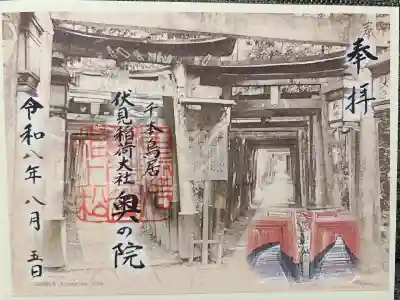 奉拝
千本鳥居
伏見稲荷大社
奥の院
令和八年 八月 五日